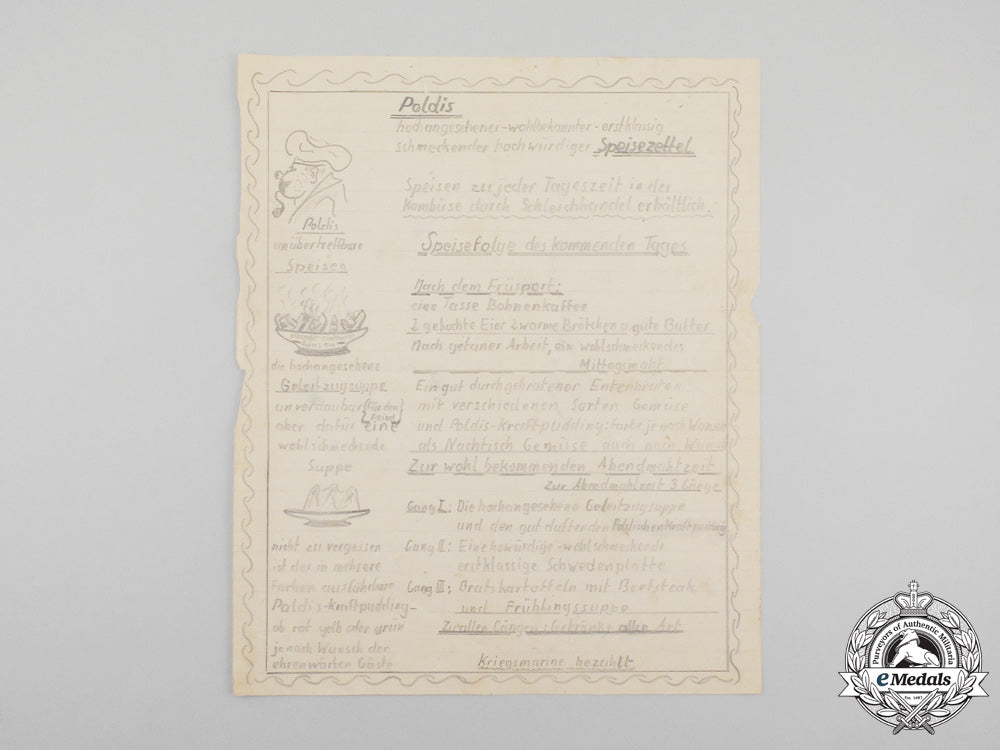 Poldis
hochangesehener-wohlbekannter-erstklassig
schmeckender hochwürdiger Speisezettel
Speisen zu jeder Tageszeit in der
Kombüse durch Schleichhandel erhältlich.
Speisefolge des kommenden Tages
Nach dem Früsport:
eine Tasse Bohnenkaffee
2 gekochte Eier 2 warme Brötchen u gute Butter
Nach getaner Arbeit, ein wohlschmeckendes
Mittagsmahl
Ein gut durchgebratener Entenbraten
mit verschiedenen Sorten Gemüse
und Poldis-Kraftpudding: Farbe je nach Wunsch
als Nachtisch Gemüse auch nach Wunsch
Zur wohl bekommenden Abendmahlzeit
Zur Abendmahlzeit 3 Gänge
Gang I: Die hochangesehene Geleitzugsuppe
und den gut duftenden Poldischen Kraftpudding
Gang II: Eine howürdige-wohlschmeckende
erstklassige Schwedenplatte
Gang III: Bratskartoffeln mit Beefsteak
und Frühlingssuppe
Zu allen Gängen: Getränke allen Art
Kriegsmarine bezahlt.
Poldis
unübertreffbare
Speisen
die hochangesehene
Geleitzugsuppe
unverdaubar {für den Feind}
aber dafür eine
wohlschmeckende
Suppe
nicht zu vergessen
ist der in mehrere
Farben ausführbare
Poldis-Kraftpudding-
ob rot gelb oder grün
je nach Wunsch der
ehrenwärten Gäste
Purveyors of Authentic Militaria
eMedals
Est. 1987